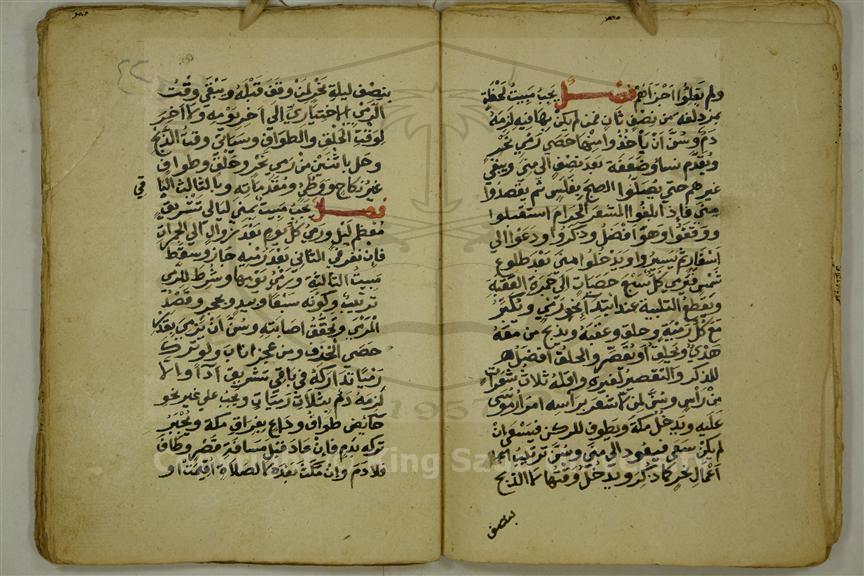 ولم يفعلوا اجزاهم فصل يجب مبيت لحظة
بمزدلفة من نصف ثان فمن لم يكن بها فيه لزمه
دم وسن ان يأخذوا منها حصى رمي نحر
ويقدم نساء وضعفة بعد نصف الى منى ويبقى
غيرهم حتى يصلوا الصبح بغلس ثم يقصدوا
منى فاذا بلغوا المشعر الحرام استقبلوا
ووقفوا وهو افضل وذكروا ودعوا الى
اسفار ثم يسيروا ويدخلوا منى بعد طلوع
شمس فيرمي كل سبع حصيات الى جمرة العقبة
ويقطع التلبية عند ابتداء نحو رمي ويكبر
مع كل رمية وحلق وعقبه ويذبح من معه
هدي ويحلق او يقصر والحلق افضل
للذكر والتقصير لغيره واقله ثلاث شعرات
من رأس وسن لمن لا شعر براسه امرار موسى
عليه ويدخل مكة ويطوف للركن فيسعى ان
لم يكن سعى فيعود الى منى وسن ترتيب
اعمال نحر كما ذكر ويدخل وقتها لا الذبح
بنصف
بنصف ليلة نحر لمن وقف قبله ويبقى وقت
الرمي الاختياري الى آخر يومه ولا آخر
لوقت الحلق والطواف وسياتي وقت الذبح
وحل باثنين من رمي نحر وحلق وطواف
غير نكاح ووطئ ومقدماته وبالثالث الباقي
فصل يجب مبيت بمنى ليالي تشريق
معظم ليل ورمي كل يوم بعد زوال الى الجمرات
فإن نفر في الثاني بعد رميه جاز وسقط
مبيت الثالثة ورمي يومها وشرط للرمي
ترتيب وكونه سبعا وبيد وبحجر وقصد
المرمى وتحقق اصابته وسن ان يرمي بقدر
حصى الخذف ومن عجز اناب ولو ترك
رميا تداركه في باقي تشريق اداء والا
لزمه دم بثلاث رميات ويجب على غير نحو
حائض طواف وداع بفراق مكة ويجبر
تركه بدم فان عاد قبل مسافة قصر وطاف
فلا دم وان مكث بعده لا لصلاة اقيمت او